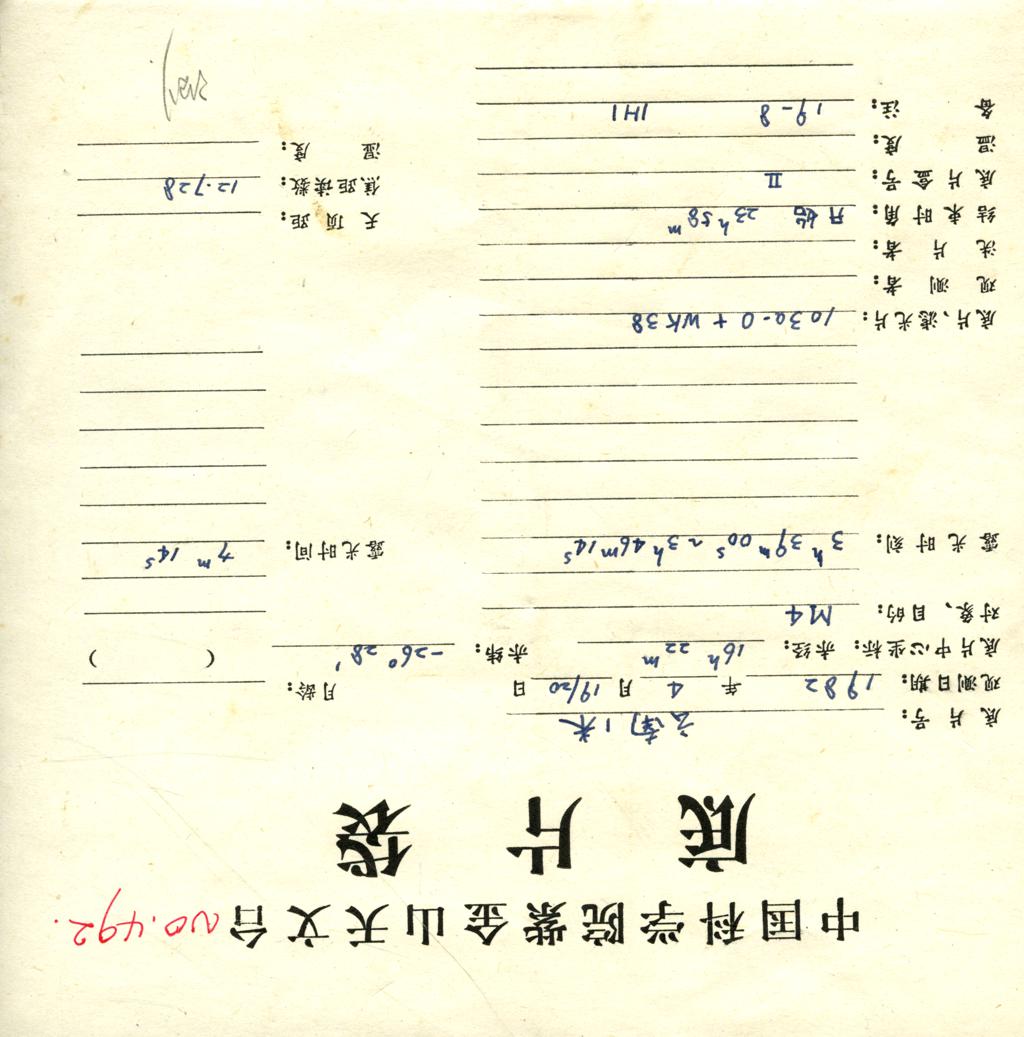 中国科学院紫金山天文台 NO.492.
底片袋
底片号： 云南1米
观测日期： 1982 年 4 月 19/20 日 月龄：
底片中心坐标： 赤经： 16h 22m 赤纬： -26° 28′ （ ）
对象、目的： M4
露光时刻： 3h 39m 00s ~ 3h 46m 14s 露光时间： 7m 14s
底片、滤光片： 103a-O + WK38
观测者：
洗片者：
结束时角： 开始 23h 58m 天顶距：
底片盒号： II 焦距读数： 12.728
温度： 湿度：
备注： 19-8 1H1